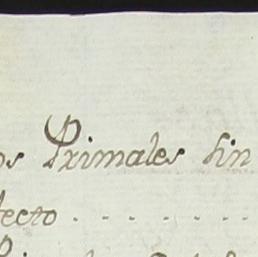 os Primales sin
fecto . . . . . . .